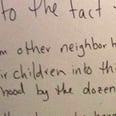 to the fact
m other neighbor h
ir children into thi
hood by the dozen